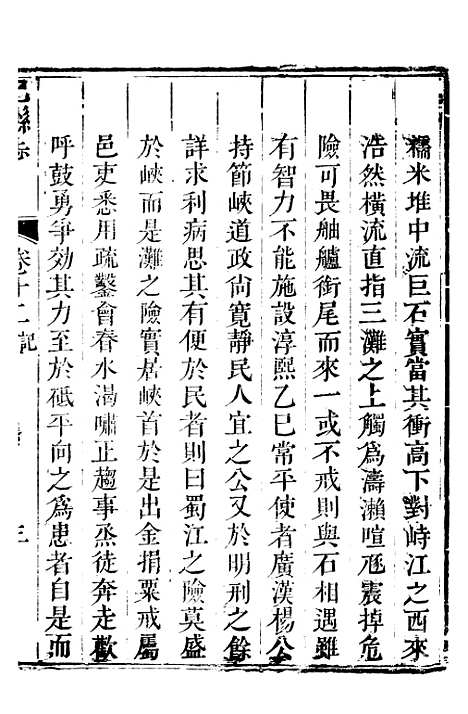 糯米堆中流巨石實當其衝高下對峙江之西來
浩然橫流直指三灘之上觸爲濤瀨喧豗震掉危
險可畏舳艫銜尾而來一或不戒則與石相遇雖
有智力不能施設淳熙乙巳常平使者廣漢楊公
持節峽道政尙寛靜民人宜之公又於明刑之餘
詳求利病思其有便於民者則曰蜀江之險莫盛
於峽而是灘之險實居峽首於是出金捐粟戒屬
邑吏悉用疏鑿會春水渴嘯正趨事烝徒奔走歡
呼鼓勇争効其力至於砥平向之爲患者自是而
巴縣志
卷十二 記
三